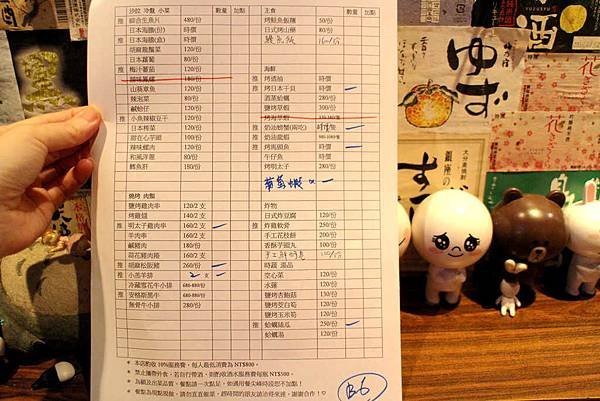 沙拉 冷盤 小菜 數量 加點
推 綜合生魚片 480/份
日本海膽(份) 時價
日本海膽(盒) 時價
胡麻龍鬚菜 120/份
日本蘿蔔 80/份
推 梅汁蕃茄 120/份
180/份
山葵章魚 120/份
辣泡菜 80/份
鹹蛤仔 120/份
推 小魚辣椒豆干 120/份
日本榨菜 120/份
甜在心芋頭 100/份
辣味螺肉 120/份
和風洋蔥 80/份
鱈魚肝 180/份
燒烤 肉類
鹽烤雞肉串 120/2 支
烤雞翅 140/2 支
推 明太子雞肉串 160/2 支
羊肉串 160/2 支
鹹豬肉 180/份
荷花豬肉捲 160/2 支
推 胡麻松阪豬 260/份
推 小羔羊排 2 支
冷藏雪花牛小排 680-880/份
推 安格斯黑牛 680-880/份
無骨牛小排 280/份
主食 數量 加點
烤鮭魚飯糰 50/份
日式烤山藥 80/份
160/份
海鮮
推 烤透抽 時價
推 烤日本干貝 時價
酒蒸蛤蠣 280/份
鹽烤草蝦 300/份
烤海草蝦
推 奶油螃蟹(兩吃) 時價
推 奶油龍蝦
推 烤馬頭魚 時價
午仔魚 時價
烤明太子 280/份
葡萄蝦
炸物
日式炸豆腐 120/份
推 炸雞軟骨 250/份
手工花枝餅 200/份
香酥芋頭丸 100/份
手工
時蔬 湯品
空心菜 120/份
水蓮 120/份
鹽烤杏鮑菇 130/份
鹽烤茭白筍 120/份
鹽烤玉米筍 120/份
推 蛤蠣絲瓜 250/份
蛤蠣湯 120/份
* 本店酌收 10%服務費，每人最低消費為 NT$800。
* 禁止攜帶外食，若自行帶酒，則酌收酒水服務費每瓶 NT$500。
* 為顧及出菜品質，餐點請一次點足，如遇用餐尖峰時段恕不加點！
* 餐點為現點現做，請勿直接催菜，超時間的朋友請洽櫃來連，謝謝合作！♡
B-6
ゆず
酒